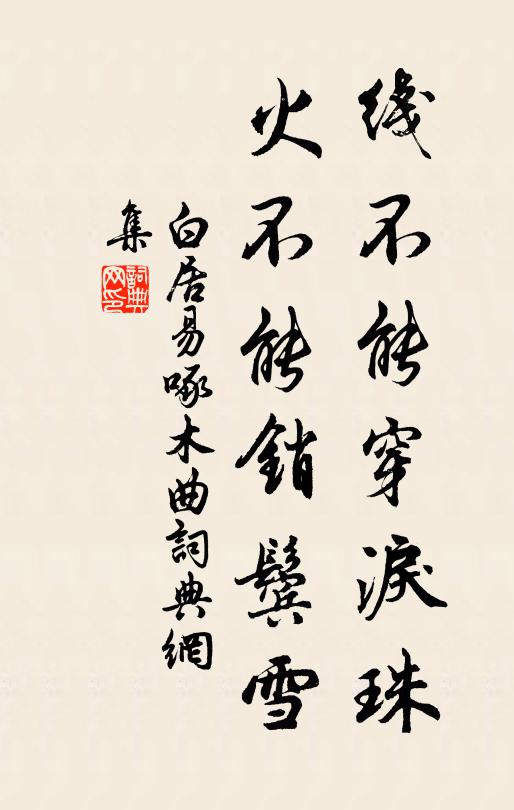 线不能穿淚珠
火不能銷鬓雪
白居易啄木曲詞典網
集
詞典网印